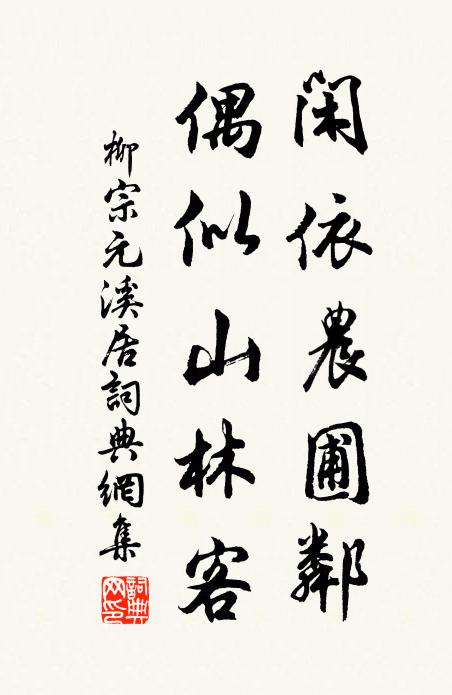 閑依農圃鄰
偶似山林客
柳宗元溪居詞典網集
詞典網印